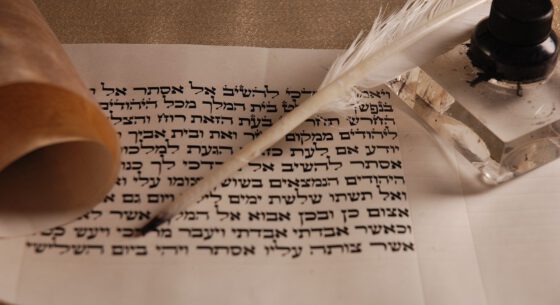 להשיב אל אסתר אל
בנפשך בית המלך מכל היהודים
החרש בעת הזאת רוח והצלה
ליהודים ממקום ואת ובית אביך
יודע אם לעת הגעת למלכות
אסתר להשיב אל מרדכי לך
היהודים הנמצאים בשושן וצומו עלי ואל
ואל תשתו שלשת ימים ויום גם אני
אצום כן ובכן אבוא אל המלך אשר לא
וכאשר אבדתי אבדתי ויעבר מרדכי ויעש ככל
אשר צותה עליו אסתר ויהי ביום השלישי